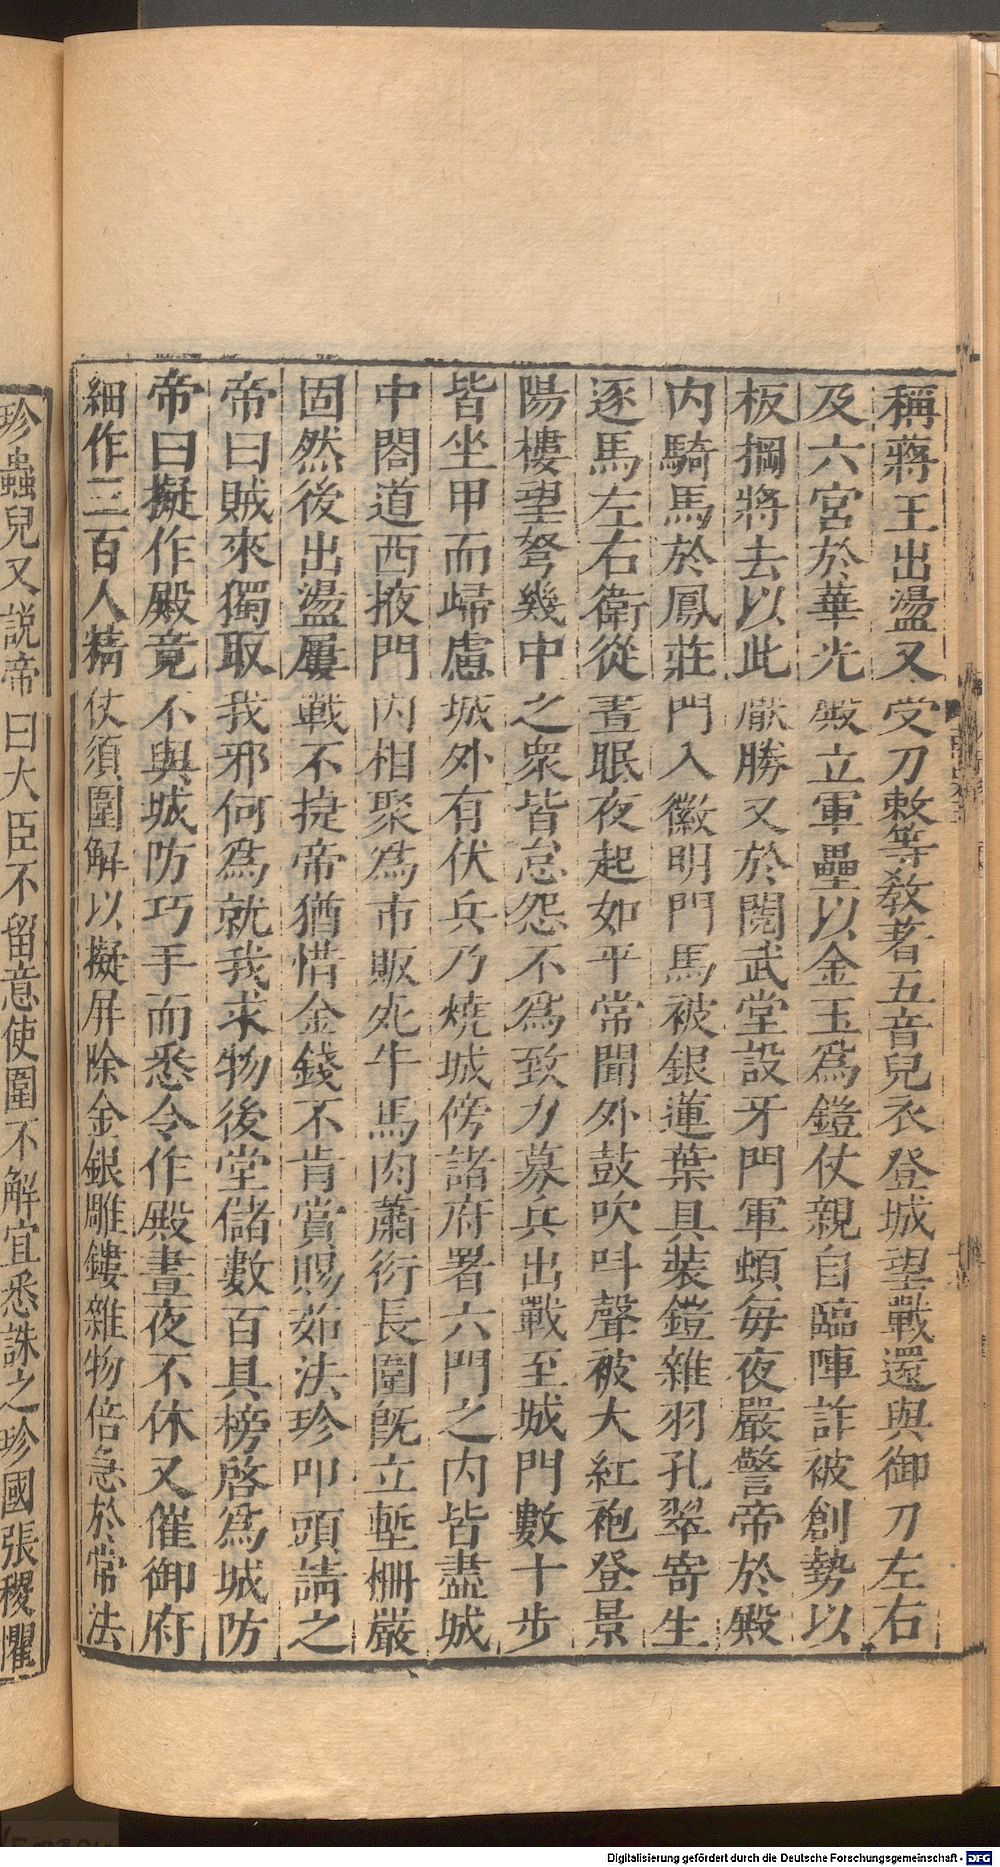 稱蔣王出盪又受刀敕等教著五音兒衣登城望戰還與御刀左右
及六宮於華光殿立軍壘以金玉爲鎧仗親自臨陣詐被創勢以
板掆將去以此厭勝又於閱武堂設牙門軍頓每夜嚴警帝於殿
内騎馬於鳳莊門入徽明門馬被銀蓮葉具裝鎧雜羽孔翠寄生
逐馬左右衛從晝眠夜起如平常聞外鼓吹呌聲被大紅袍登景
陽樓望弩幾中之衆皆怠怨不爲致力募兵出戰至城門數十步
皆坐甲而歸慮城外有伏兵乃燒城傍諸府署六門之内皆盡城
中閤道西掖門内相聚爲市販死牛馬肉蕭衍長圍旣立塹柵嚴
固然後出盪屢戰不捷帝猶惜金錢不肯賞賜茹法珍叩頭請之
帝曰賊來獨取我邪何爲就我求物後堂儲數百具榜啓爲城防
帝曰擬作殿竟不與城防巧手而悉令作殿晝夜不休又催御府
細作三百人精仗須圍解以擬屏除金銀雕鏤雜物倍急於常法
珍蟲兒又説帝曰大臣不留意使圍不解宜悉誅之珍國張稷懼
Digitalisierung gefördert durch die Deutsche Forschungsgemeinschaft - DFG